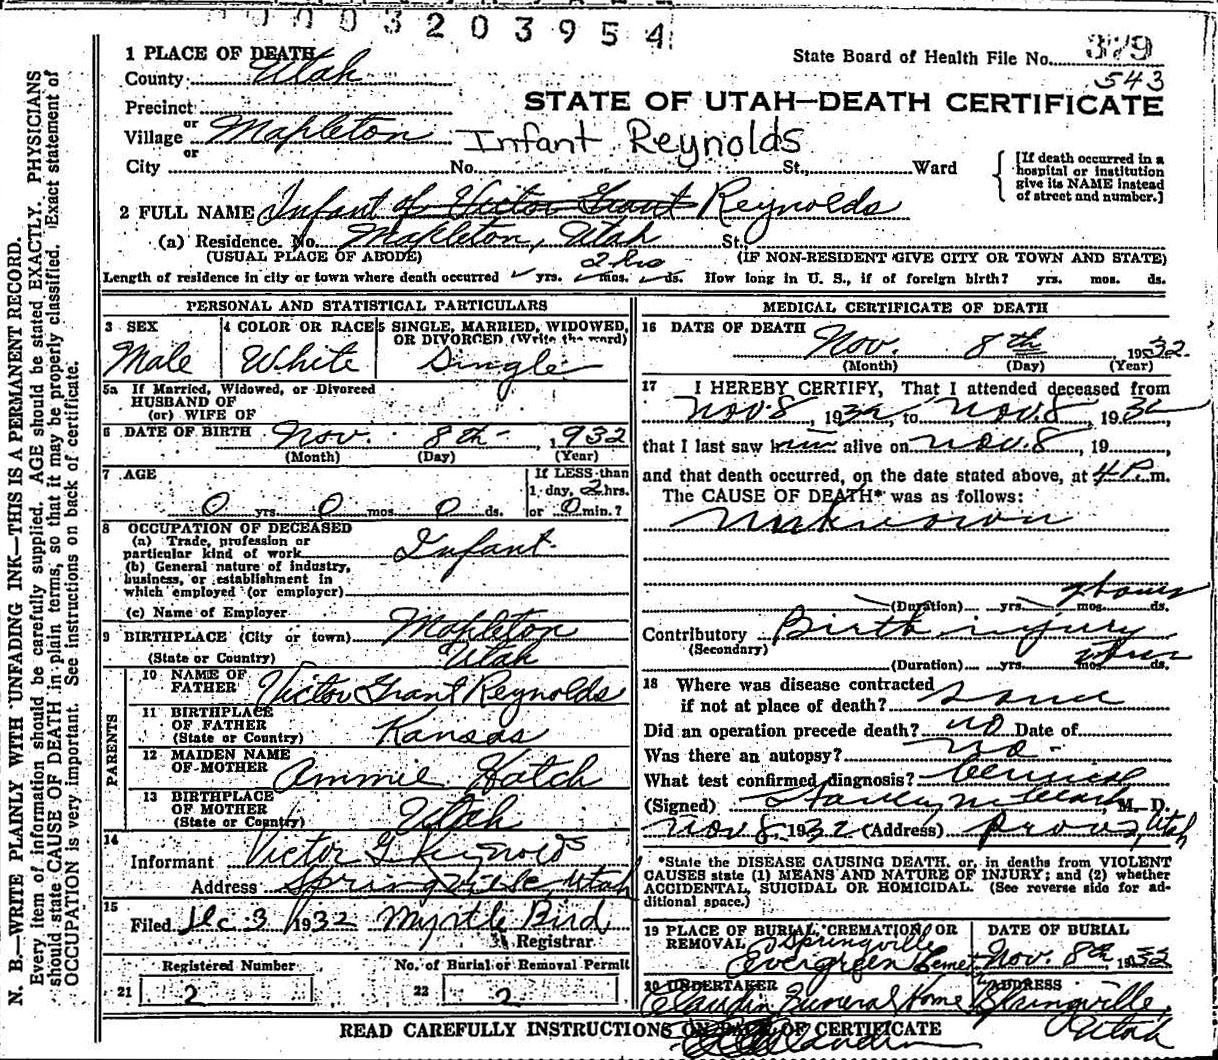 0003203954
1 PLACE OF DEATH
County Utah
State Board of Health File No. 379
543
Precinct
STATE OF UTAH—DEATH CERTIFICATE
or
Village Mapleton Infant Reynolds
or
City No. St., Ward
[If death occurred in a
hospital or institution
give its NAME instead
of street and number.]
2 FULL NAME Infant of Victor Grant Reynolds
(a) Residence. No. Mapleton, Utah St.,
(USUAL PLACE OF ABODE) 2 hrs (IF NON-RESIDENT GIVE CITY OR TOWN AND STATE)
Length of residence in city or town where death occurred yrs. mos. ds. How long in U. S., if of foreign birth? yrs. mos. ds.
PERSONAL AND STATISTICAL PARTICULARS
3 SEX
Male
4 COLOR OR RACE
White
5 SINGLE, MARRIED, WIDOWED,
OR DIVORCED (Write the word)
Single
5a If Married, Widowed, or Divorced
HUSBAND OF
(or) WIFE OF
6 DATE OF BIRTH Nov. 8th- 1932
(Month) (Day) (Year)
7 AGE
0 yrs. 0 mos. 0 ds.
If LESS than
1 day, 2 hrs.
or 0 min.?
8 OCCUPATION OF DECEASED
(a) Trade, profession or
particular kind of work Infant.
(b) General nature of industry,
business, or establishment in
which employed (or employer)
(c) Name of Employer
9 BIRTHPLACE (City or town) Mapleton
(State or Country) Utah
PARENTS
10 NAME OF
FATHER Victor Grant Reynolds
11 BIRTHPLACE
OF FATHER
(State or Country) Kansas
12 MAIDEN NAME
OF MOTHER Ammie Hatch
13 BIRTHPLACE
OF MOTHER
(State or Country) Utah
14
Informant Victor G Reynolds
Address Springville, Utah
15
Filed Dec 3 1932 Myrtle Bird
Registrar
Registered Number
21 2
No. of Burial or Removal Permit
22 2
MEDICAL CERTIFICATE OF DEATH
16 DATE OF DEATH
Nov. 8th 1932.
(Month) (Day) (Year)
17 I HEREBY CERTIFY, That I attended deceased from
Nov. 8, 1932, to Nov. 8, 1932,
that I last saw him alive on Nov. 8, 19,
and that death occurred, on the date stated above, at 4 P.m.
The CAUSE OF DEATH* was as follows:
Unknown
2 hours
(Duration) yrs. mos. ds.
Contributory Birth injury
(Secondary)
(Duration) yrs. mos. ds.
18 Where was disease contracted
if not at place of death?
Did an operation precede death? no Date of
Was there an autopsy? no -
What test confirmed diagnosis? Clinical
(Signed) M. D.
Nov 8, 1932 (Address) Provo, Utah
*State the DISEASE CAUSING DEATH, or, in deaths from VIOLENT
CAUSES state (1) MEANS AND NATURE OF INJURY; and (2) whether
ACCIDENTAL, SUICIDAL OR HOMICIDAL. (See reverse side for ad-
ditional space.)
19 PLACE OF BURIAL, CREMATION, OR
REMOVAL Springville
Evergreen Cemet
DATE OF BURIAL
Nov. 8th, 1932
20 UNDERTAKER
Claudin Funeral Home
ADDRESS
Springville,
Utah
READ CAREFULLY INSTRUCTIONS ON BACK OF CERTIFICATE
N. B.—WRITE PLAINLY WITH UNFADING INK—THIS IS A PERMANENT RECORD.
Every item of information should be carefully supplied. AGE should be stated EXACTLY. PHYSICIANS
should state CAUSE OF DEATH in plain terms, so that it may be properly classified. Exact statement of
OCCUPATION is very important. See instructions on back of certificate.